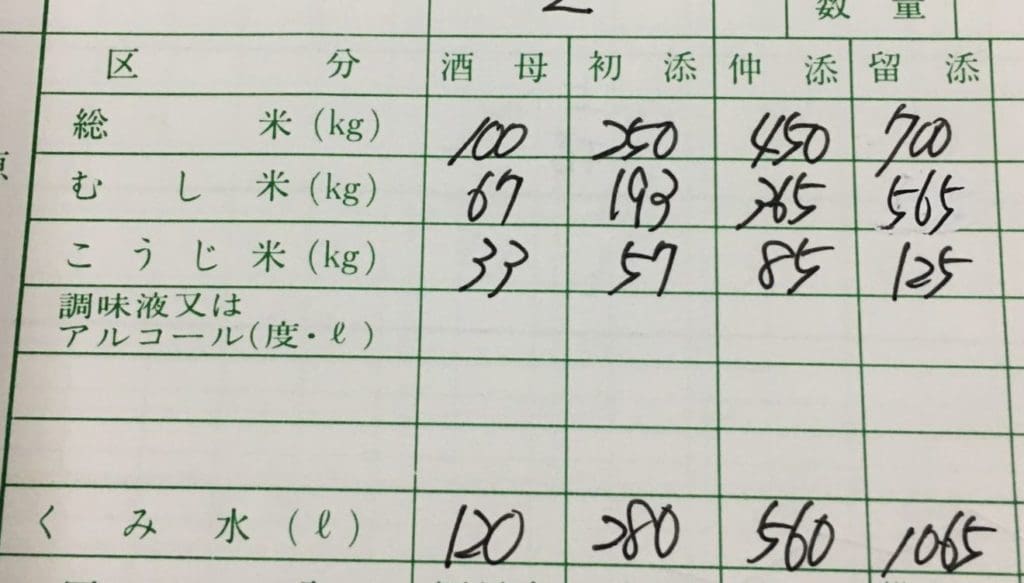 数量
区分 酒母 初添 仲添 留添
総米(kg) 100 250 450 700
むし米(kg) 67 193 365 565
こうじ米(kg) 33 57 85 125
調味液又は
アルコール(度・ℓ)
くみ水(ℓ) 120 280 560 1065